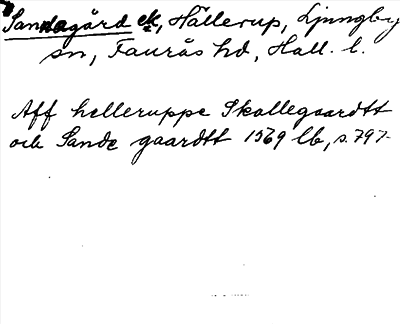 Sandagård ek, Hällerup, Ljungby
sn, Faurås hd, Hall. l.
Aff helleruppe Skallegaardtt
och Sande gaardtt 1569 lb, s. 797.